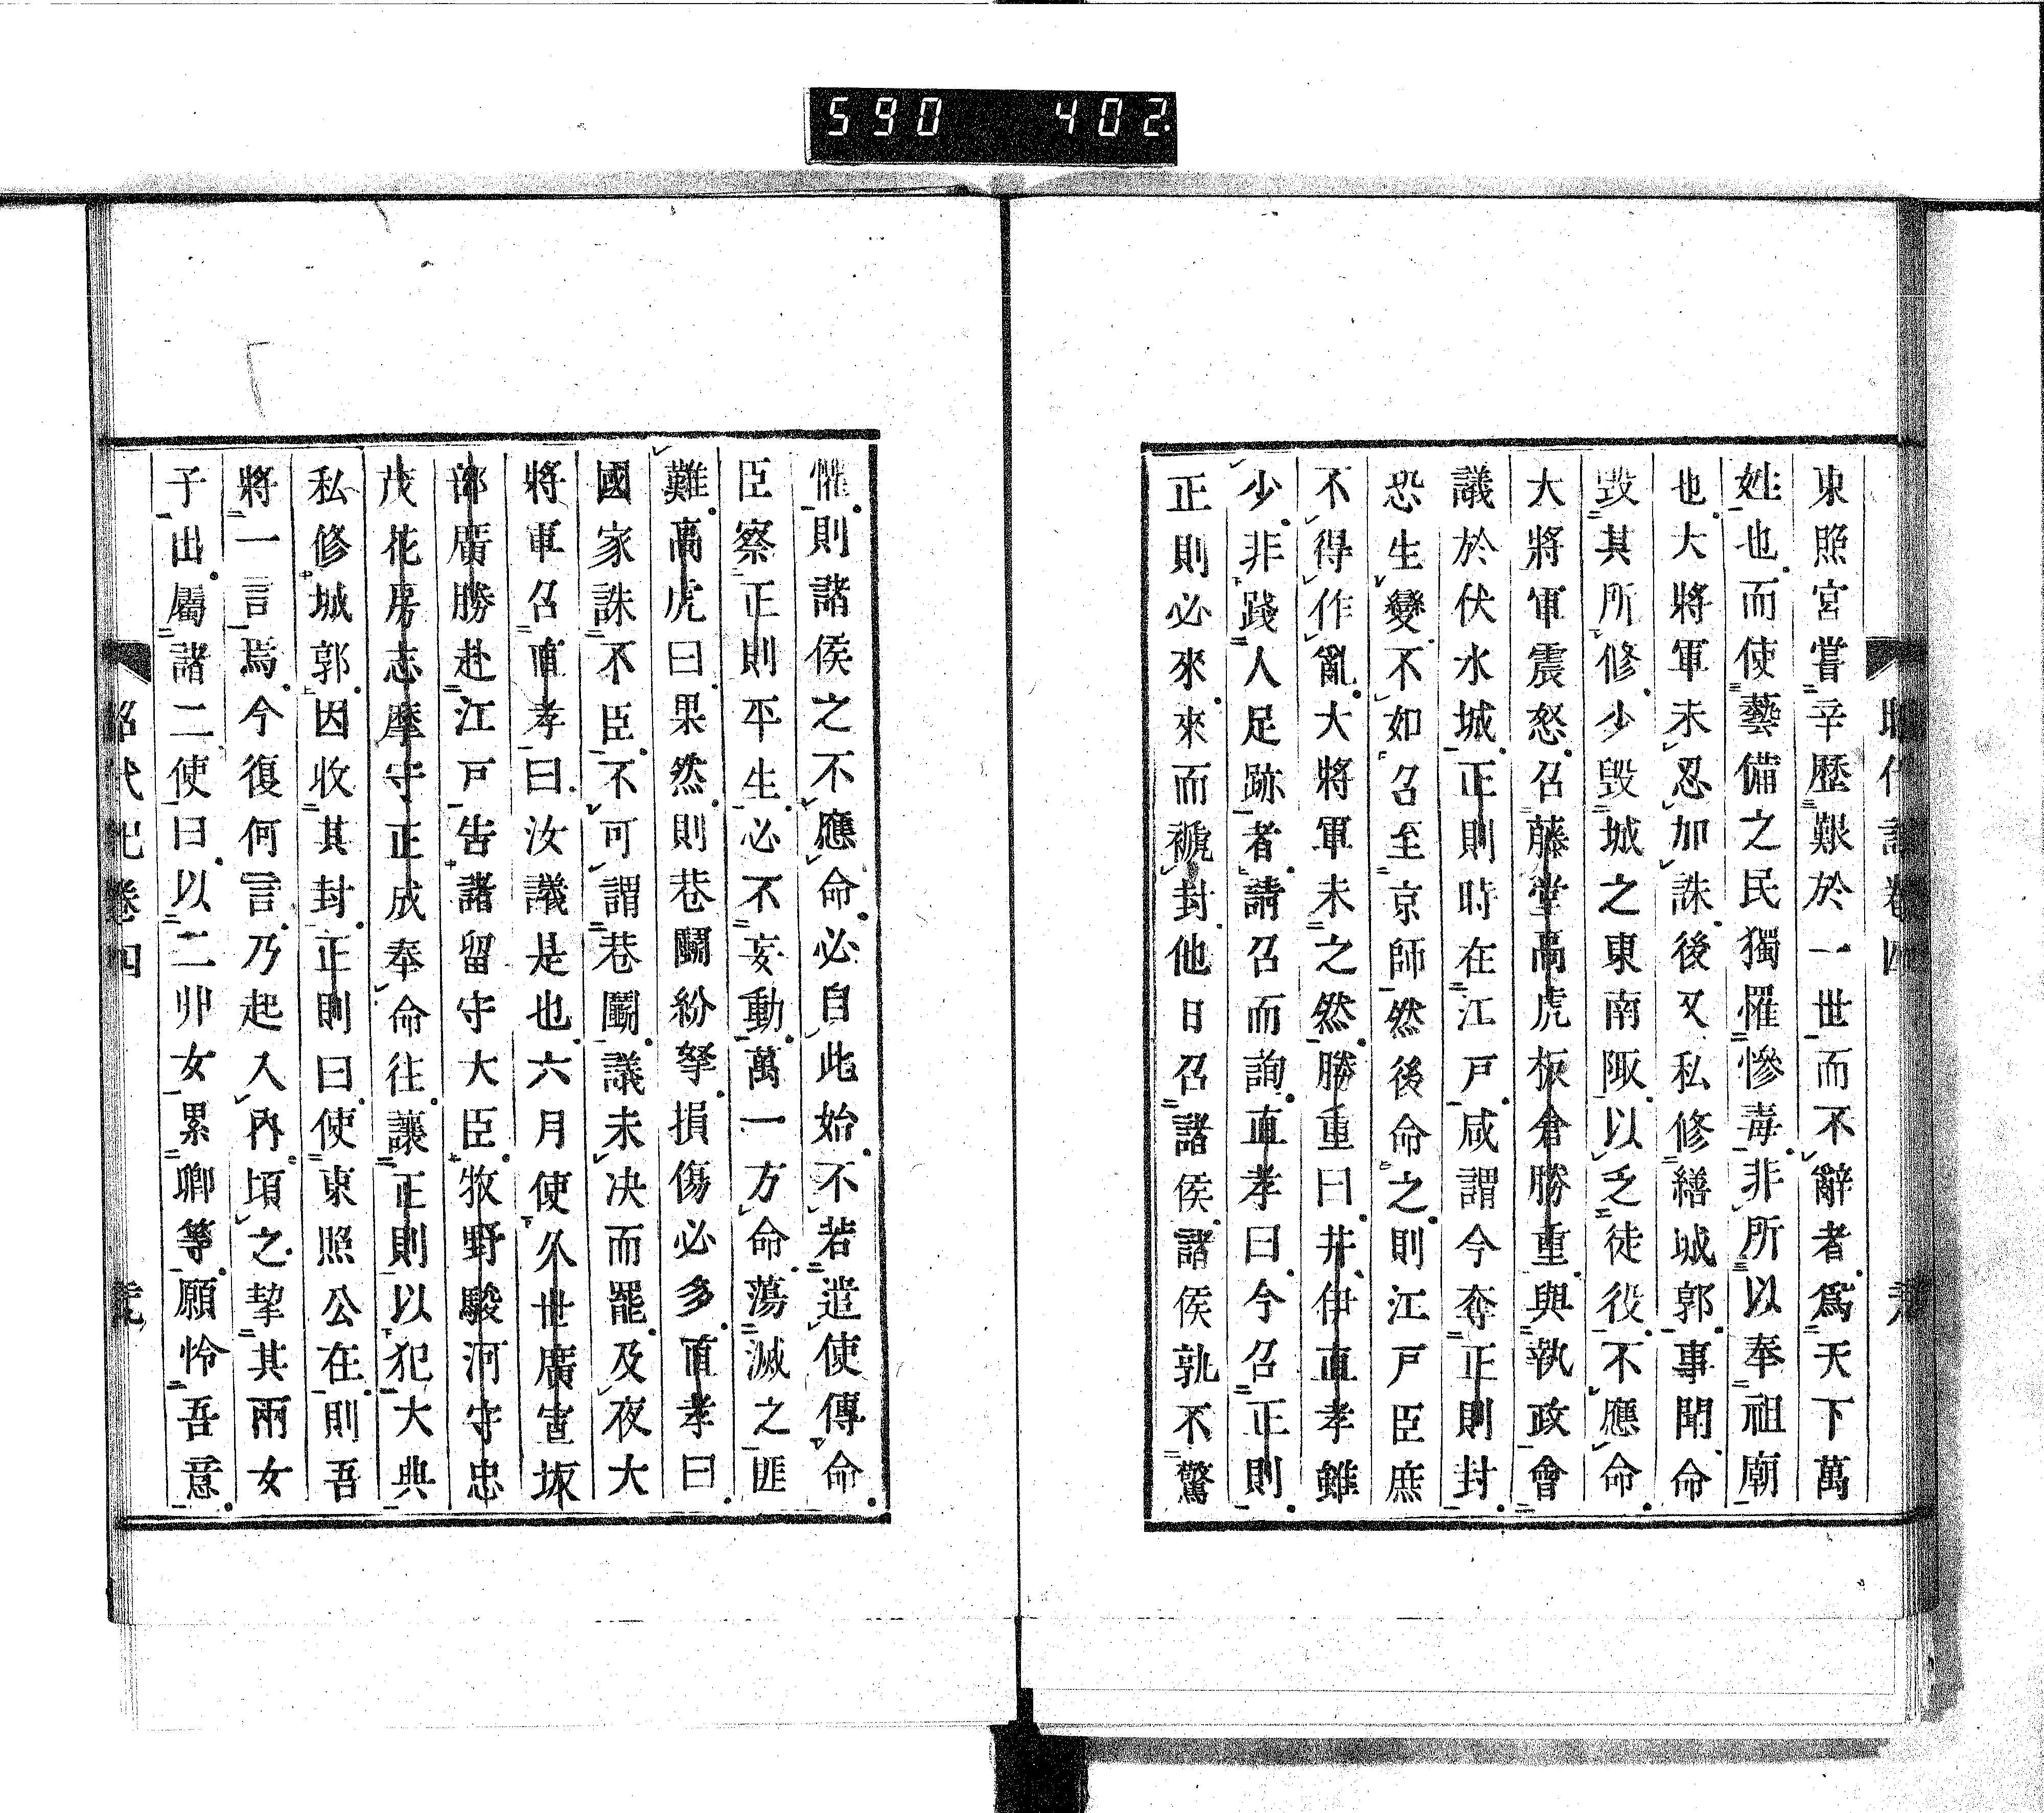 590 402
東照宮嘗辛歷艱於一世而不辭者爲天下萬
姓也而使藝備之民獨罹慘毒非所以奉祖廟
也大將軍未忍加誅後又私修繕城郭事聞命
毀其所修少毀城之東南陬以乏徒役不應命
大將軍震怒召藤堂高虎板倉勝重與執政會
議於伏水城正則時在江戸咸謂今奪正則封
恐生變不如召至京師然後命之則江戸臣庶
不得作亂大將軍未之然勝重曰井伊直孝雖
少非踐人足跡者請召而詢直孝曰今召正則
正則必來來而褫封他日召諸侯諸侯孰不驚
惟則諸侯之不應命必自此始不若遣使傳命
臣察正則平生必不妄動萬一方命蕩滅之匪
難高虎曰果然則巷鬪紛拏損傷必多直孝曰
國家誅不臣不可謂巷鬪議未决而罷及夜大
將軍召直孝曰汝議是也六月使久世廣宣坂
部廣勝赴江戸告諸留守大臣牧野駿河守忠
茂花房志摩守正成奉命往讓正則以犯大典
私修城郭因收其封正則曰使東照公在則吾
將一言焉今復何言乃起入內頃之挈其兩女
子出屬諸二使曰以二丱女累卿等願怜吾意
昭代記卷四